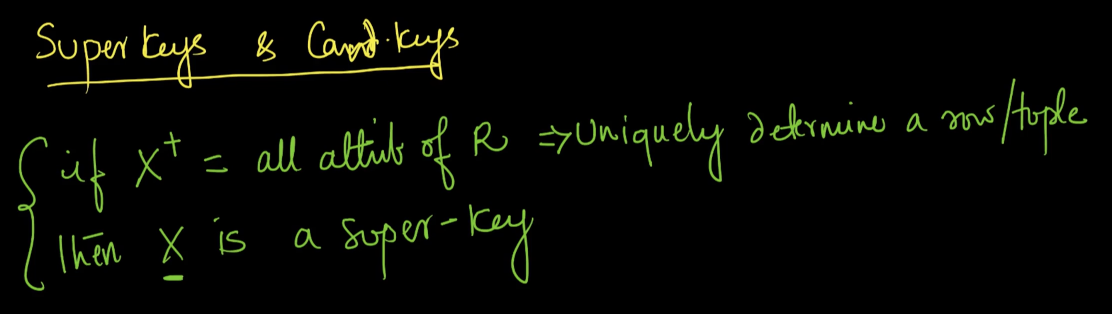 Super keys & Cand. keys
if X⁺ = all attrib of R ⇒ Uniquely determine a row/tuple
then X is a super-key